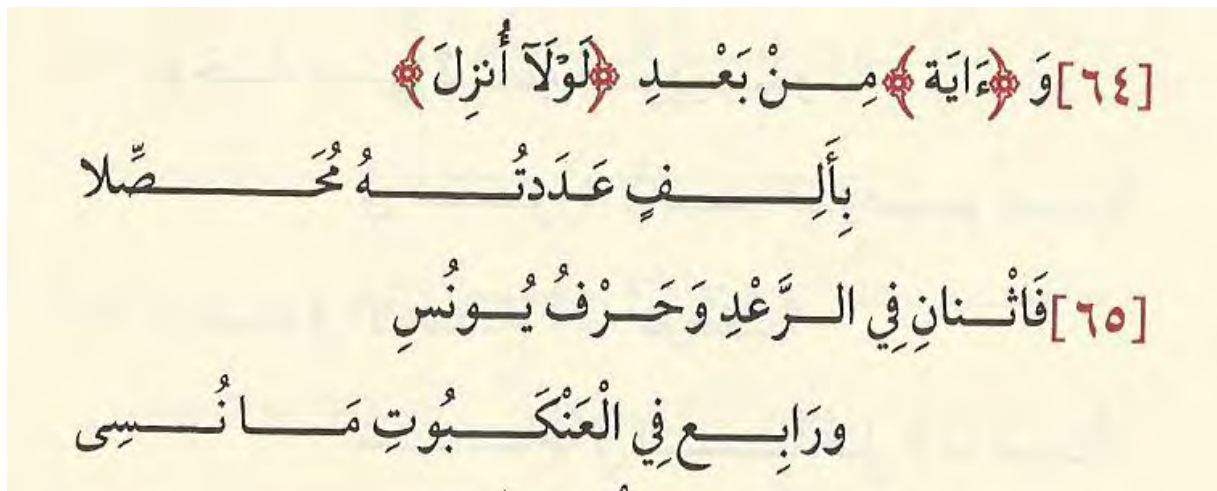 [٦٤] وَ ﴿ءَايَة﴾ مِنْ بَعْدِ ﴿لَوْلَآ أُنزِلَ﴾
بِأَلِفٍ عَدَدتُهُ مُحَصِّلا
[٦٥] فَاثْنانِ فِي الرَّعْدِ وَحَرْفُ يُونُسِ
ورَابِع فِي الْعَنْكَبُوتِ مَا نُسِى